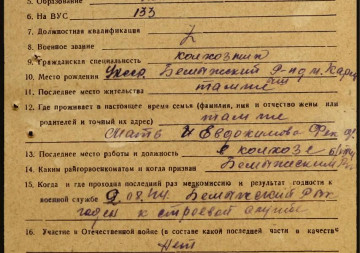 5. Образование
6. На ВУС 133
7. Должностная квалификация
8. Военное звание
9. Гражданская специальность колхозник
10. Место рождения Бемыжский р-н д. м.
11. Последнее место жительства там же
12. Где проживает в настоящее время семья (фамилия, имя и отчество жены или
родителей и точный их адрес) там же
Мать Евдокимова
13. Последнее место работы и должность в колхозе
14. Каким райгорвоенкоматом и когда призван Бемыжским
15. Когда и где проходил последний раз медкомиссию и результат годности к
военной службе 2.08.44 Бемыжский РВК
годен к строевой службе
16. Участие в Отечественной войне (в составе какой последней части в качестве
Нет